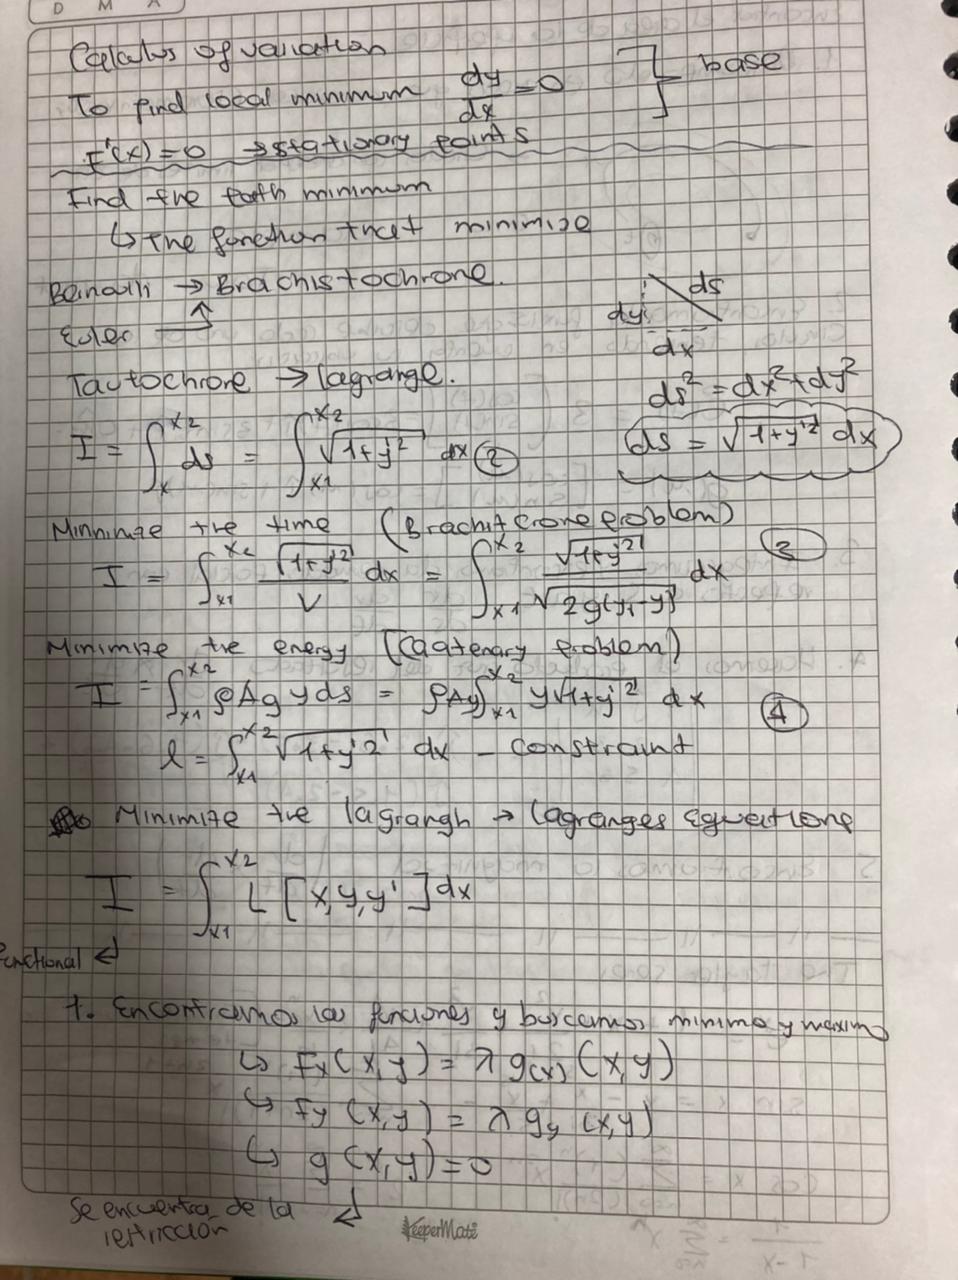 D M A
Calculus of variation
To find local minimum dy/dx = 0 ] base
F'(x) = 0 → stationary points
Find the path minimum
↳ the function that minimize
→ Brachistochrone.
Euler
Tautochrone → lagrange.
ds
dy
dx
ds² = dx² + dy²
ds = √(1+y'²) dx
I = ∫_x^x2 ds = ∫_x1^x2 √(1+y'²) dx (2)
Minimize the time (Brachit crone problem)
I = ∫_x1^x2 √(1+y'²)/V dx = ∫_x1^x2 √(1+y'²)/√(2g(y1-y)) dx (3)
Minimize the energy (Caatenary problem)
I = ∫_x1^x2 ρAg y ds = ρAg ∫_x1^x2 y√(1+y'²) dx (4)
l = ∫_x1^x2 √(1+y'²) dx - constraint
Minimize the lagrangh → lagranges Equations
I = ∫_x1^x2 L [x, y, y'] dx
Functional ↲
1. Encontramos las funciones y buscamos minimo y maximo
↳ Fx (x,y) = λ g(x) (x,y)
↳ Fy (x,y) = λ gy (x,y)
↳ g (x,y) = 0
Se encuentra de la ↲
restriccion
KeeperMate